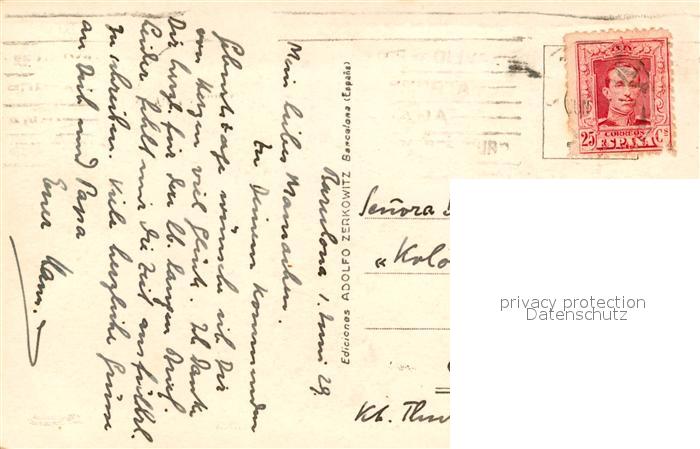 Barcelona 1. Juni 29.
Mein liebes Mamachen.
Zu Deinem kommenden
Geburtstage wünsche ich Dir
von Herzen viel Glück. Ich danke
Dir herzl. für den lb. langen Brief.
Leider fehlt mir die Zeit ausführl.
zu schreiben. Viele herzliche Grüsse
an Dich und Papa
Euer Hans.
Ediciones ADOLFO ZERKOWITZ Barcelona (España)
25 CORREOS Cs
ESPAÑA
Señora
"Kolo
Kb. Thur
privacy protection
Datenschutz